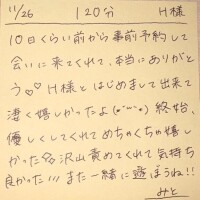 11/26 120分 H様
10日くらい前から事前予約して
会いに来てくれて、本当にありがと
う♡♡ H様とはじめまして出来て
凄く嬉しかったよ(*˘︶˘*) 終始、
優しくしてくれてめちゃくちゃ嬉し
かった 沢山責めてくれて気持ち
良かった!!! また一緒に遊ぼうね!!
みと